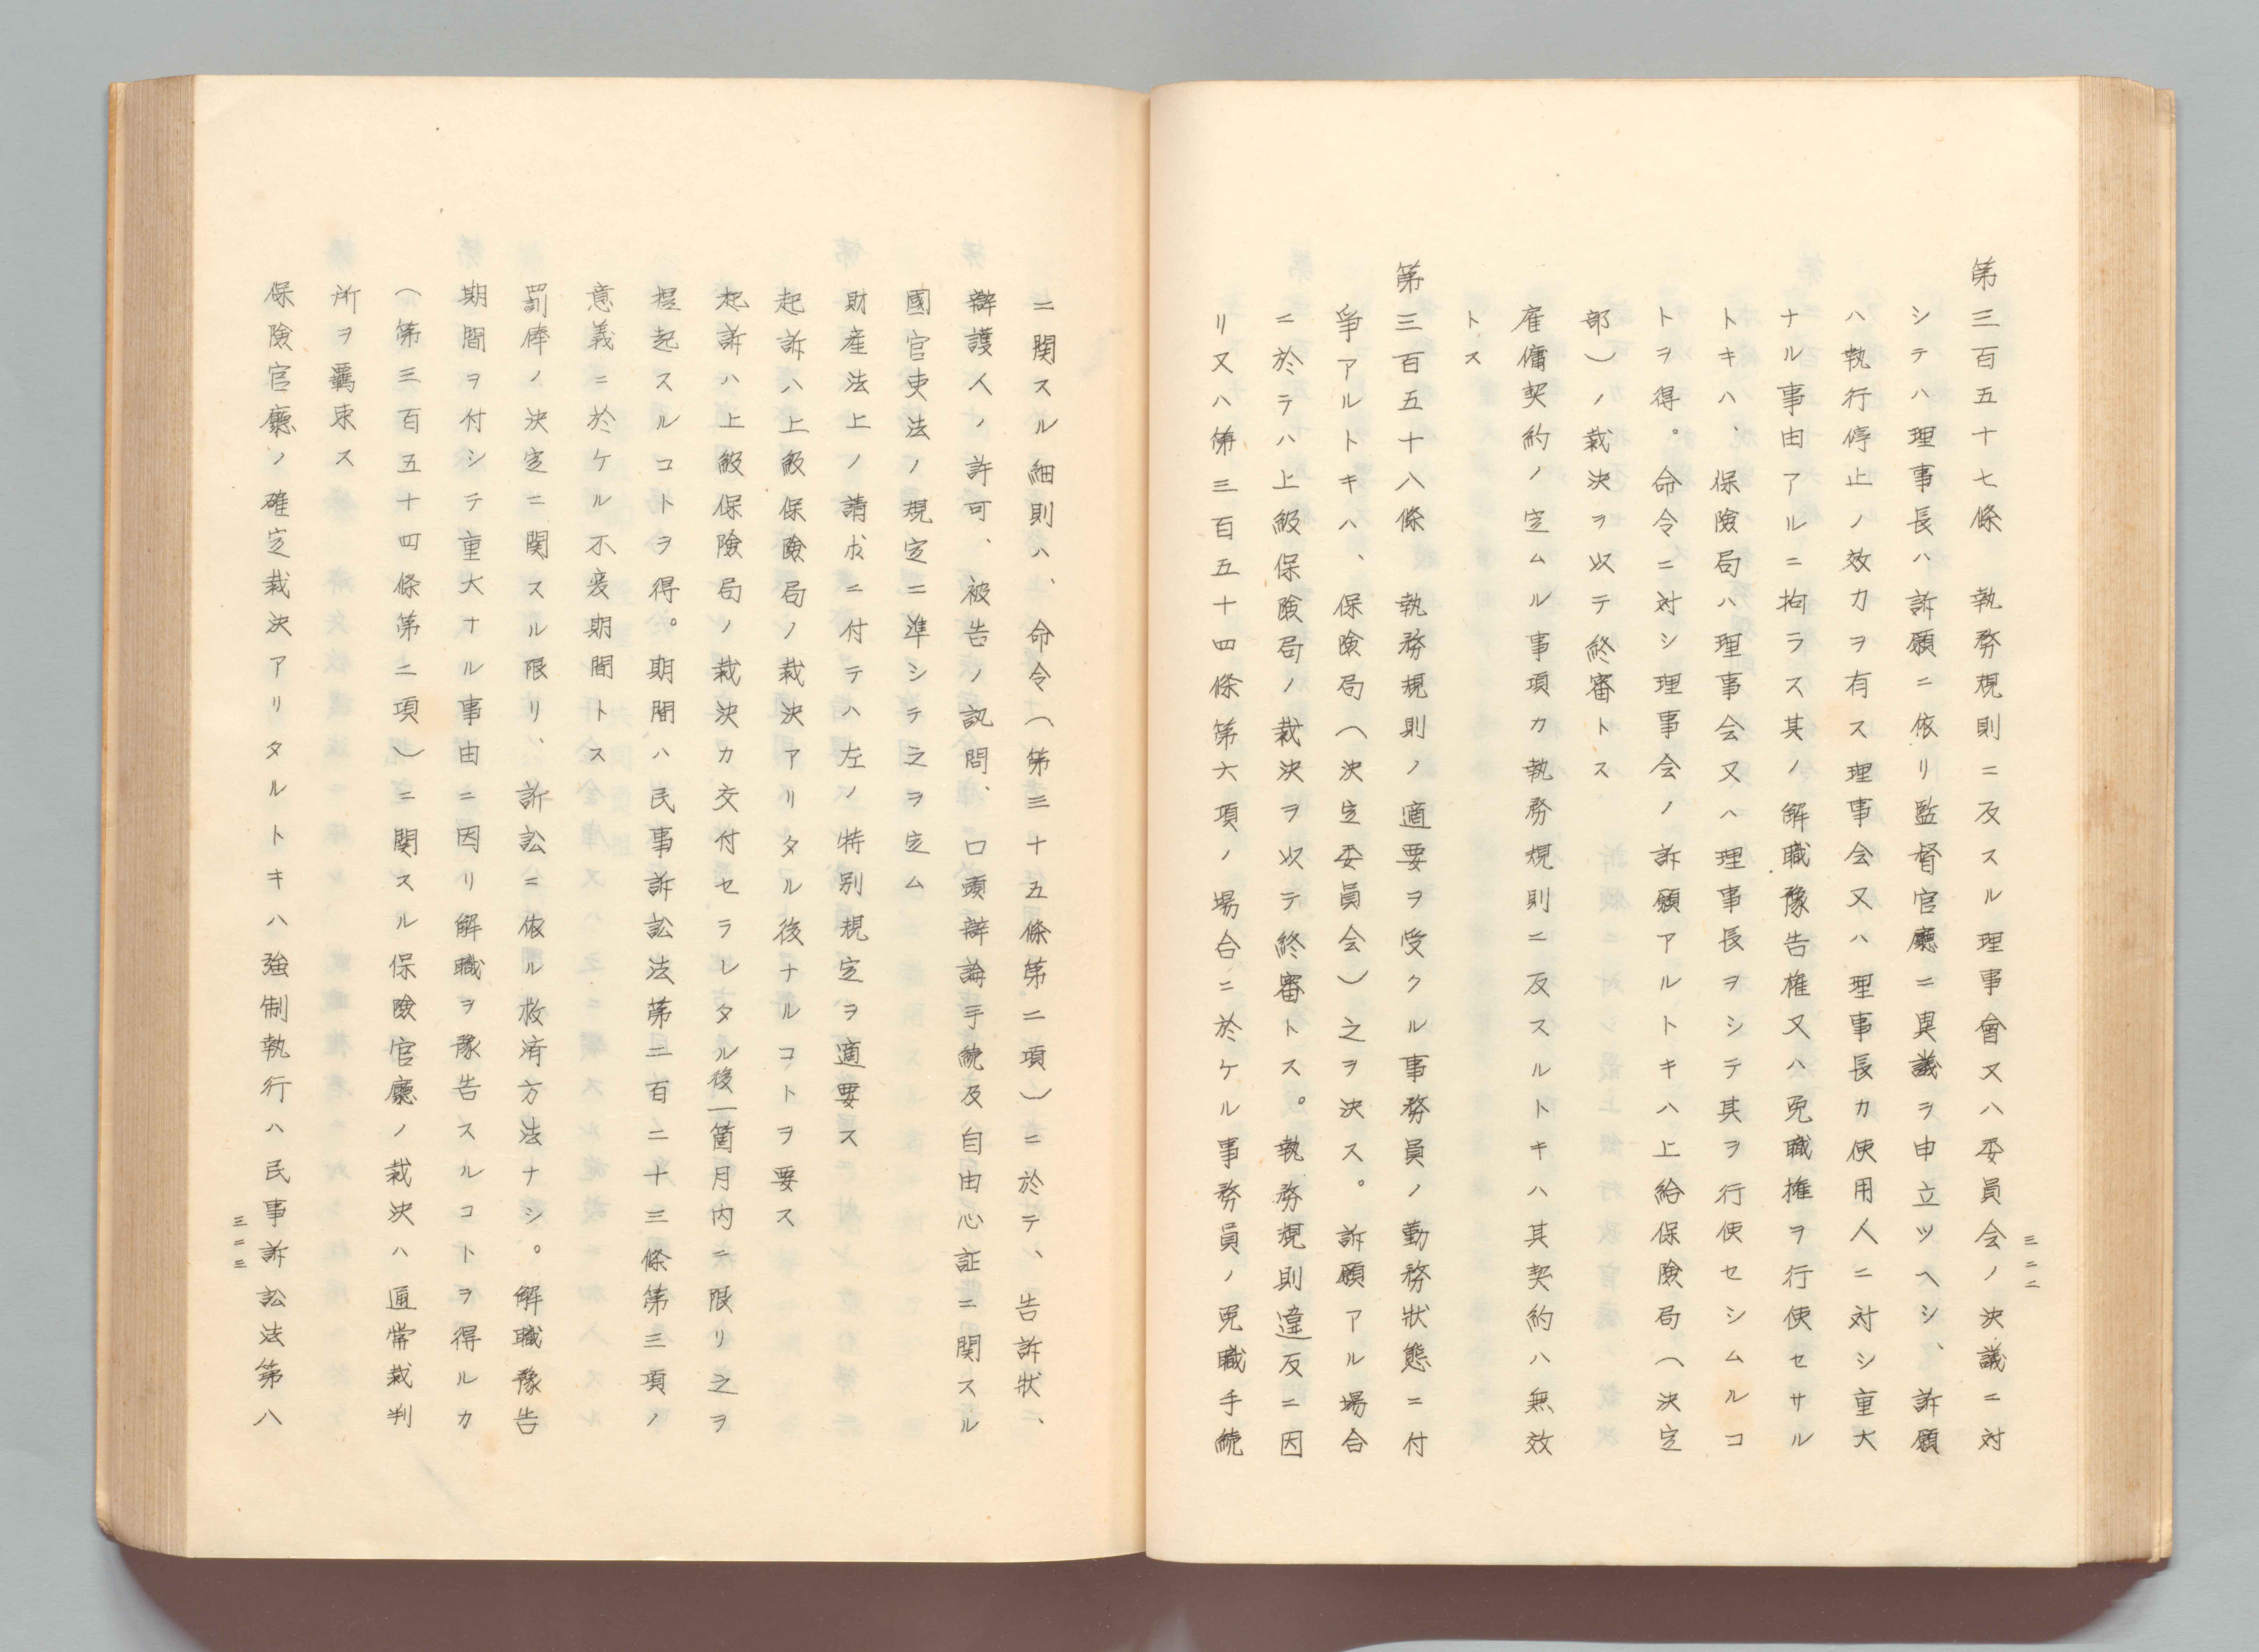 第三百五十七條　執務規則ニ反スル理事會又ハ委員会ノ決議ニ対
シテハ理事長ハ訴願ニ依リ監督官廳ニ異議ヲ申立ツヘシ、訴願
ハ執行停止ノ效力ヲ有ス理事会又ハ理事長カ使用人ニ対シ重大
ナル事由アルニ拘ラス其ノ解職豫告権又ハ免職権ヲ行使セサル
トキハ、保險局ハ理事会又ハ理事長ヲシテ其ヲ行使セシムルコ
トヲ得。命令ニ対シ理事会ノ訴願アルトキハ上給保險局（決定
部）ノ裁決ヲ以テ終審トス
雇傭契約ノ定ムル事項カ執務規則ニ反スルトキハ其契約ハ無效
トス
第三百五十八條　執務規則ノ適要ヲ受クル事務員ノ勤務狀態ニ付
爭アルトキハ、保險局（決定委員会）之ヲ決ス。訴願アル場合
ニ於テハ上級保險局ノ裁決ヲ以テ終審トス。執務規則違反ニ因
リ又ハ第三百五十四條第六項ノ場合ニ於ケル事務員ノ免職手続
三二二
ニ関スル細則ハ、命令（第三十五條第二項）ニ於テ、告訴狀、
辯護人ノ許可、被告ノ訊問、口頭辯論手続及自由心証ニ関スル
國官吏法ノ規定ニ準シテ之ヲ定ム
財産法上ノ請求ニ付テハ左ノ特別規定ヲ適要ス
起訴ハ上級保險局ノ裁決アリタル後ナルコトヲ要ス
起訴ハ上級保險局ノ裁決カ交付セラレタル後一箇月内ニ限リ之ヲ
提起スルコトヲ得。期間ハ民事訴訟法第二百二十三條第三項ノ
意義ニ於ケル不変期間トス
罰俸ノ決定ニ関スル限リ、訴訟ニ依ル救済方法ナシ。解職豫告
期間ヲ付シテ重大ナル事由ニ因リ解職ヲ豫告スルコトヲ得ルカ
（第三百五十四條第二項）ニ関スル保險官廳ノ裁決ハ通常裁判
所ヲ覊束ス
保險官廳ノ確定裁決アリタルトキハ強制執行ハ民事訴訟法第八
三二三